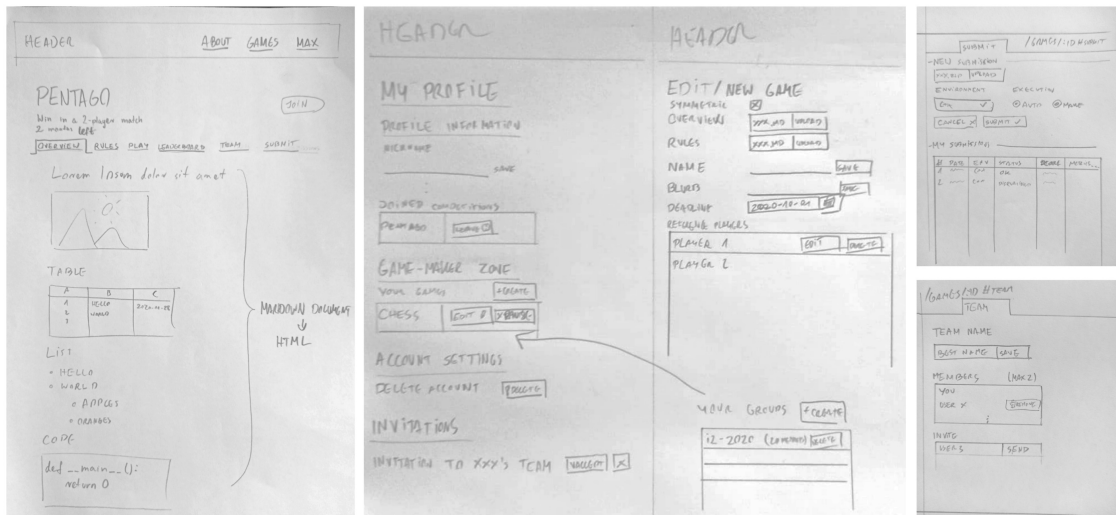 HEADER ABOUT GAMES MAX
PENTAGO
JOIN
Win in a 2-player match
2 months left
OVERVIEW RULES PLAY LEADERBOARD TEAM SUBMIT
Lorem Ipsum dolor sit amet
TABLE
A B C
1 HELLO 2020-10-28
2 WORLD
3
LIST
HELLO
WORLD
APPLES
ORANGES
CODE
def __main__():
return 0
MARKDOWN DOCUMENT
HTML
HEADER
MY PROFILE
PROFILE INFORMATION
NICKNAME
SAVE
JOINED COMPETITIONS
PENTAGO
GAME-MAKER ZONE
YOUR GAMES +CREATE
CHESS EDIT
ACCOUNT SETTINGS
DELETE ACCOUNT DELETE
INVITATIONS
INVITATION TO XXX'S TEAM ACCEPT X
HEADER
EDIT/NEW GAME
SYMMETRIC
OVERVIEW XXX.MD UPLOAD
RULES XXX.MD UPLOAD
NAME SAVE
BLURB SAVE
DEADLINE 2020-10-21
PLAYERS
PLAYER 1 EDIT DELETE
PLAYER 2
YOUR GROUPS +CREATE
i2-2020 DELETE
SUBMIT /GAMES/:ID#SUBMIT
NEW SUBMISSION
UPLOAD
ENVIRONMENT EXECUTION
AUTO
CANCEL X SUBMIT
MY SUBMISSIONS
# DATE ENV STATUS
1 OK
2
/GAMES/:ID#TEAM
TEAM
TEAM NAME
BEST NAME SAVE
MEMBERS (MAX 2)
YOU
USER X
INVITE
USERS SEND